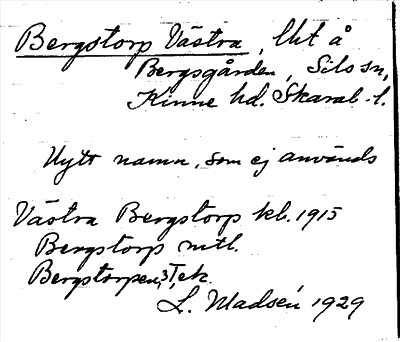 Bergstorp Västra, lht å
Bergsgården, Sils sn,
Kinne hd. Skarab. l.
Nytt namn, som ej används
Västra Bergstorp kl. 1915
Bergstorp mtl.
Bergstorpen, 3 T, ek.
L. Madsén 1929